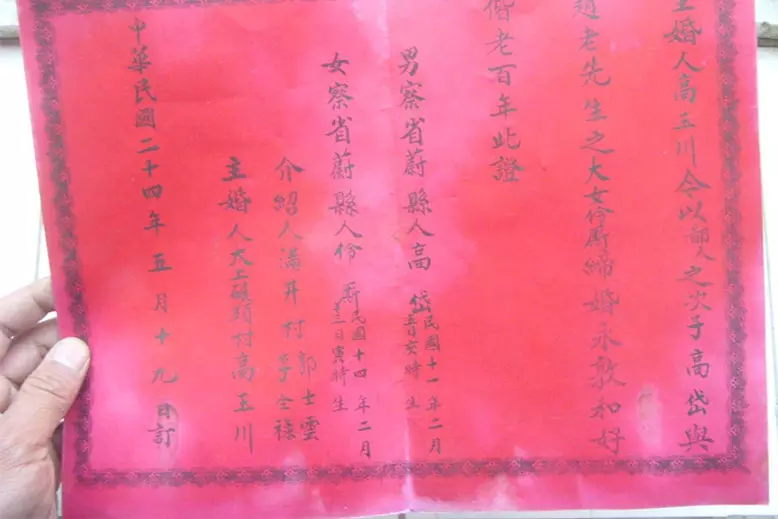 主婚人高玉川今以鄙人之次子高岱與
趙老先生之大女伶斯締婚永敦和好
偕老百年此證
男察省蔚縣人高岱民國十一年二月
五日亥時生
女察省蔚縣人伶斯民國十四年二月
十三日寅時生
介紹人滿井村 郭士雲
全祿
主婚人大上碾頭村高玉川
中華民國二十四年五月十九日訂